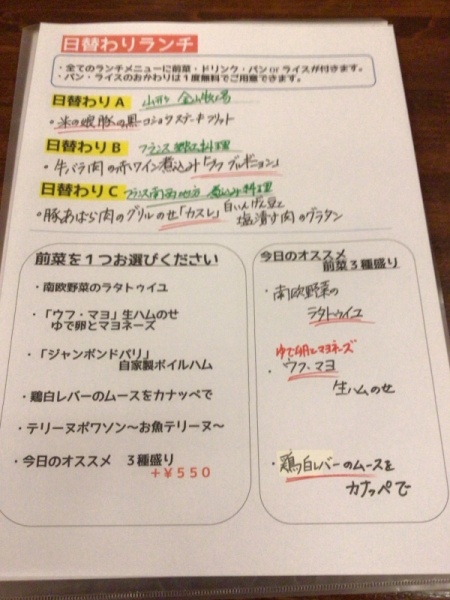 日替わりランチ
・全てのランチメニューに前菜・ドリンク・パンorライスが付きます。
・パン・ライスのおかわりは1度無料でご用意できます。
日替わりA 山形 金山牧場
・米の娘豚の黒コショウステーキフリット
日替わりB フランス郷土料理
・牛バラ肉の赤ワイン煮込み「ブフ ブルギニョン」
日替わりC フランス南西地方 煮込み料理
・豚あばら肉のグリルのせ「カスレ」白いんげん豆と
塩漬け肉のグラタン
前菜を1つお選びください
・南欧野菜のラタトゥイユ
・「ウフ・マヨ」生ハムのせ
ゆで卵とマヨネーズ
・「ジャンボンドパリ」
自家製ボイルハム
・鶏白レバーのムースをカナッペで
・テリーヌポワソン～お魚テリーヌ～
・今日のオススメ 3種盛り
＋￥550
今日のオススメ
前菜3種盛り
・南欧野菜の
ラタトゥイユ
ゆで卵とマヨネーズ
・ウフ・マヨ
生ハムのせ
・鶏白レバーのムースを
カナッペで